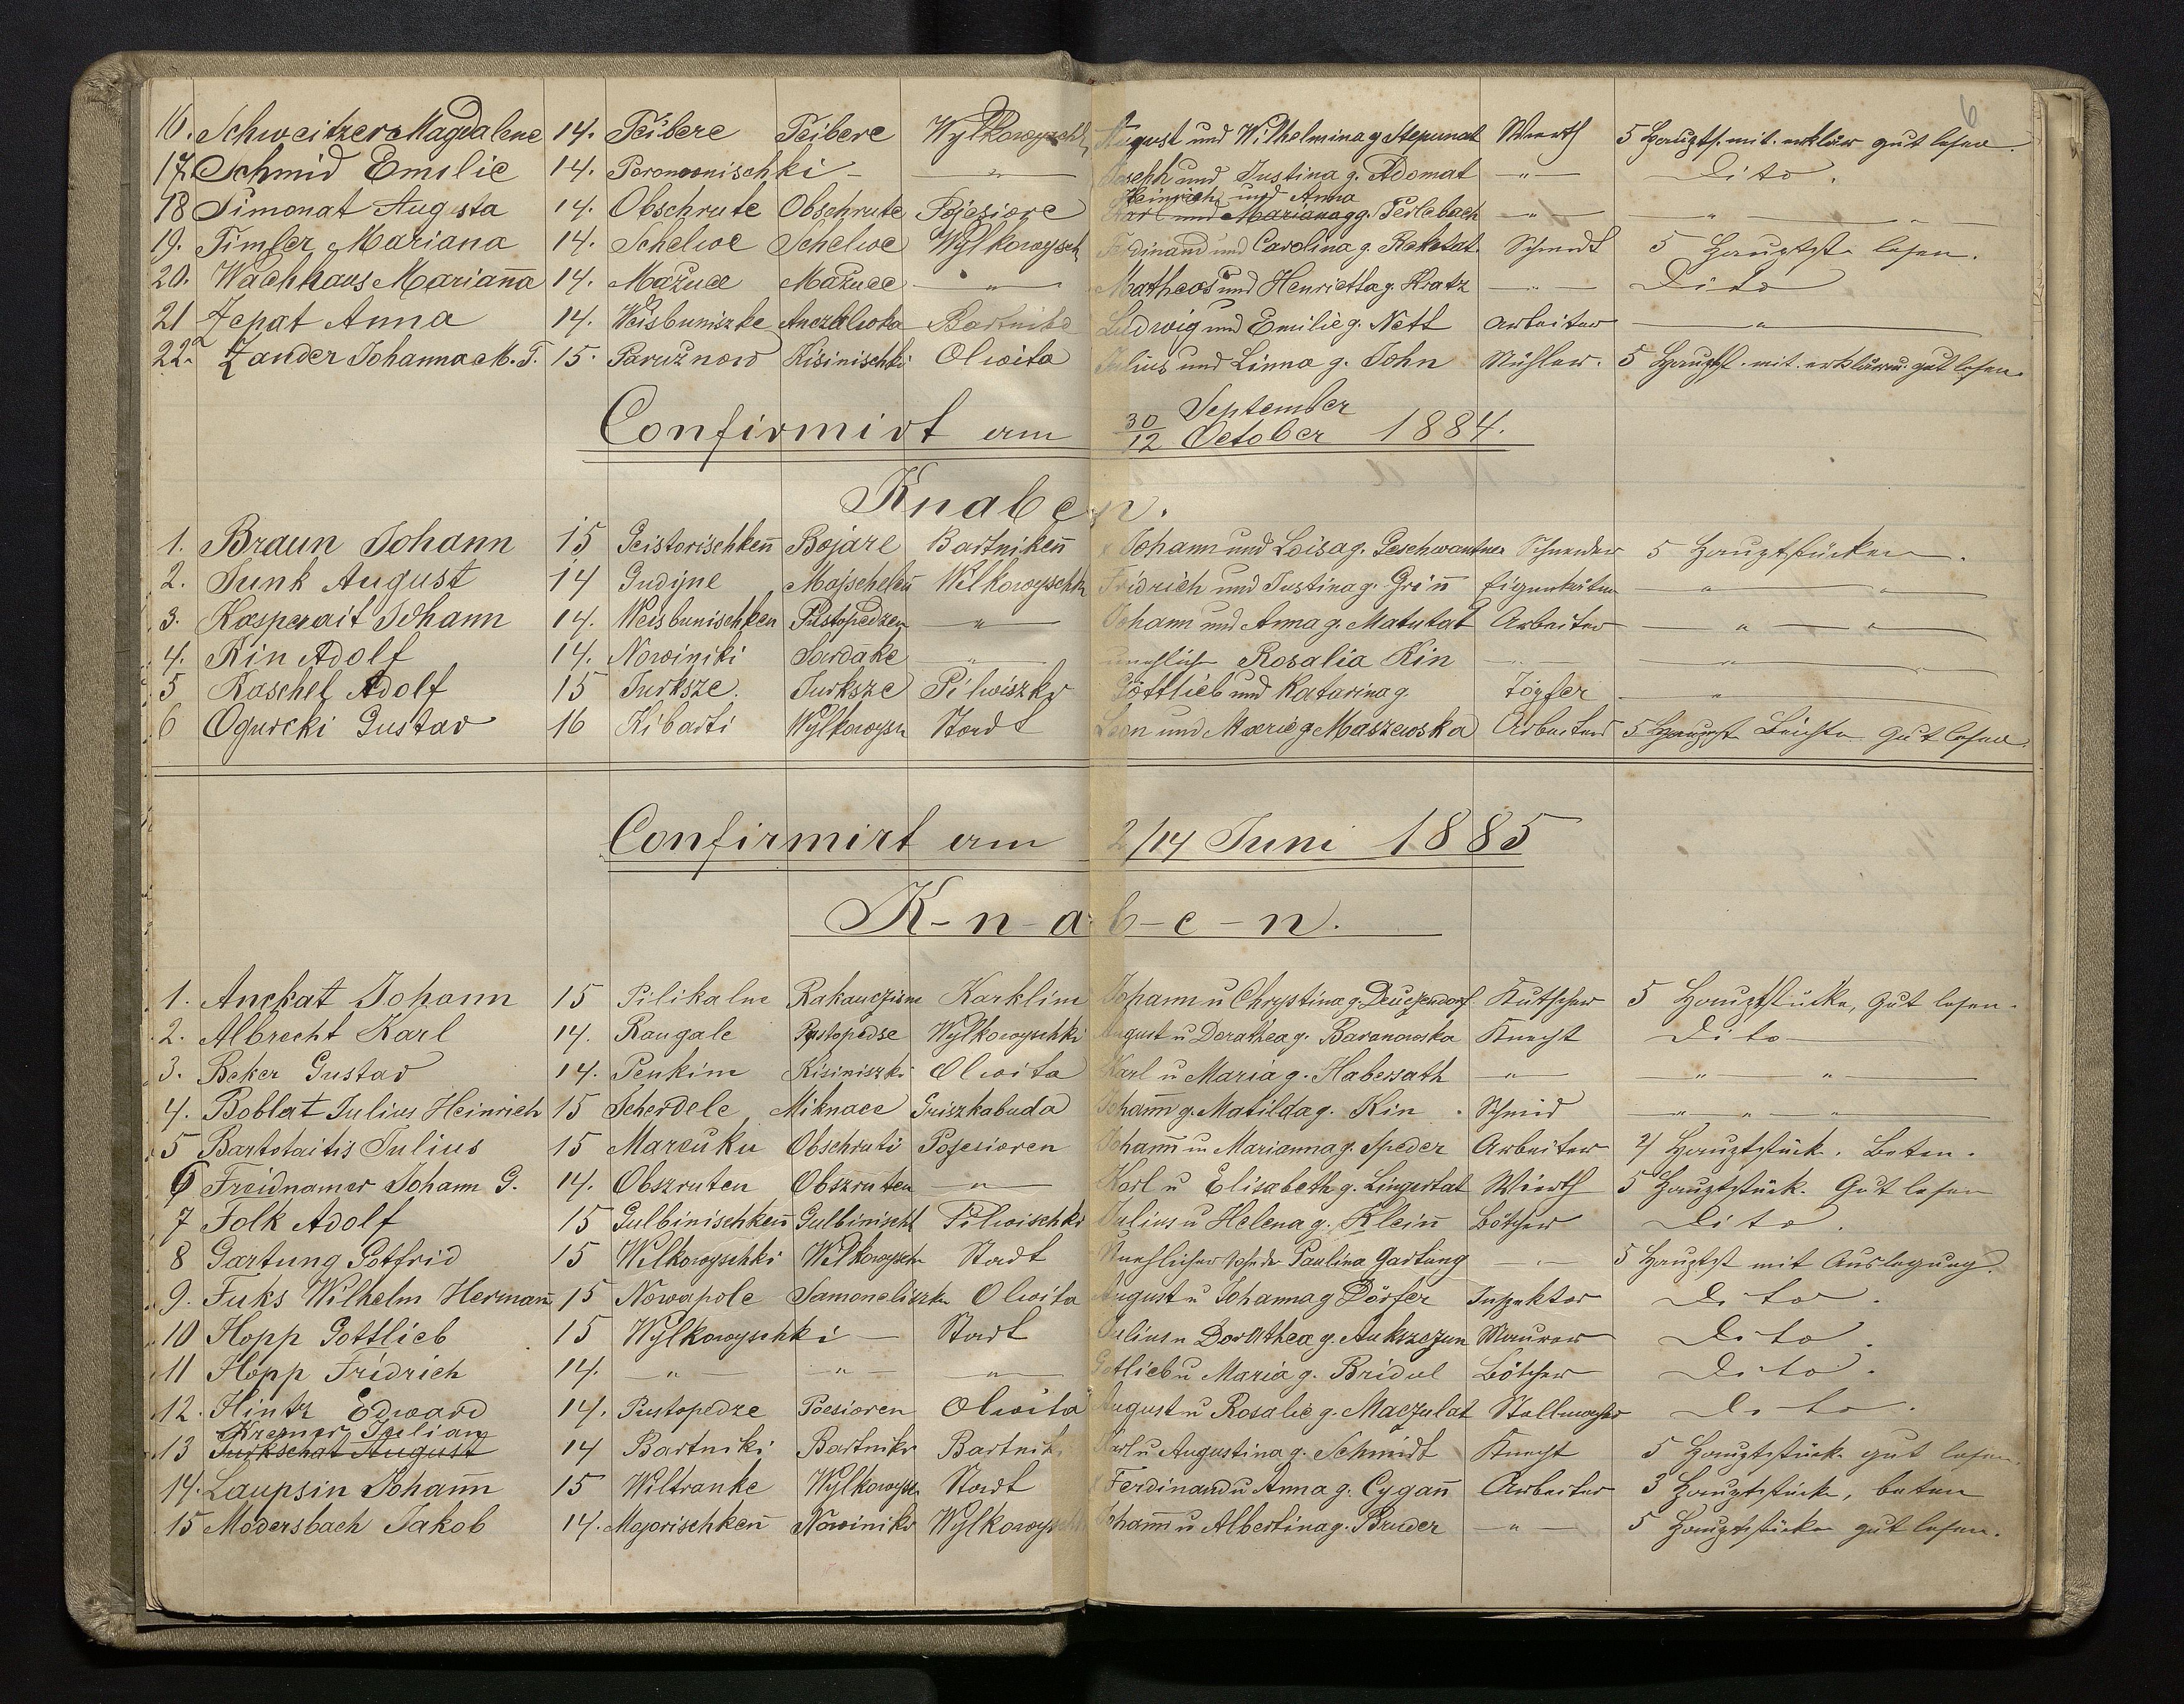 6
16. Schweitzer Magdalene 14. Peibere Peibere Wylkowyschk August und Wilhelmina g Stepunat Wierth 5 Haupts. mit. erklär gut lesen.
17. Schmid Emilie 14. - — " — Joseph und Justina g. Adomat — " — Dito.
Heinrich und Anna
18 Simonat Augusta 14. Obschrute Obschrute Pojesiore Karl und Mariana gg. Perlebach — " — — " —
19. Timler Mariana 14. Schelwe Schelwe Wylkowysch Ferdinand und Carolina g. Rekstat Schmidt 5 Hauptst. lesen.
20. Wachhaus Marianna 14. Mažuce Mažuce — " — Matheos und Henrietta g. Kratz — " — Dito
21 Zepat Anna 14. Weisbuniszke Bartnike Ludwig und Emilie g. Nett Arbeiter — " —
22. Zander Johanna M. T. 15. Paružnow Kisinischki Olwita Julius und Linna g. John Mühler. 5 Hauptst. mit. erklären gut lesen.
Confirmirt am 30/12 September October 1884.
Knaben.
1. Braun Johann 15 Geistorischken Bojare Bartniken Johann und Loisa g. Geschwantner Schneider 5 Hauptstücken.
2. Junk August 14 Gudyne Wilkowyschk Fridrich und Justina g. Grin Eigenthüm — " — " —
3. Kasperait Johann 14. Weisbunischken Pustopedzen — " — Johann und Anna g. Matutat Arbeiter — " — " —
4. Kin Adolf 14. Nowiniki Sardake — " — unehlich Rosalia Kin — " — — " —
5 Raschel Adolf 15 Turksze. Turksze Pilwiszki Gottlieb und Katarina g. Töpfer — " —
6 Ogurcki Gustav 16 Kibarti Wylkowysn Stadt Leon und Marie g Maszewska Arbeiter 5 Hauptst Beichte Gut lesen
Confirmirt am 2/14 Juni 1885
K-n-a-b-e-n.
1. Anckat Johann 15 Pilikalne Karklin Johann u Chrystina g. Deuczendorf Kutscher 5 Hauptstücke, Gut lesen.
2. Albrecht Karl 14. Raugale Pustopedse Wylkowyschki August u Derathea g. Baranowska Knecht Dito
3. Beker Gustav 14. Penkine Kisiniszki Olwita Karl u Maria g. Habersath — " — — " — " —
4. Boblat Julius Heinrich 15 Scherdele Miknace Griszkabuda Johann g. Matilda g. Kin. Schmid — " — " — " —
5 Bartotaitis Julius 15 Marcuku Obschruti Pojesioren Johann u Marianna g. Speder Arbeiter 4 Hauptstück. Beten.
6 Freidnamer Johann G. 14. Obszruten Obszruten — " — Karl u Elisabeth g. Lingertat Wierth 5 Hauptstück. Gut lesen
7 Folk Adolf 15 Gulbinischken Gulbinischk Pilwischki Julius u Helena g. Klein Bötcher Dito.
8 Gartung Gotfrid 15 Wilkowyschki Wilkowysch Stadt Unehlicher Sohn der Paulina Gartung — " — 5 Hauptst mit Auslegung.
9. Fuks Wilhelm Hermann 15 Nowapole Samoneliszke Olwita August u Johanna g Dörfer Inspektor Dito.
10 Hopp Gottlieb 15 Wylkowyschki — Stadt Julius u Dorothea g. Aukszczun Maurer Dito.
11 Hopp Fridrich 14. — " — — " — — " — Gotlieb u Maria g. Bridul Bötcher Dito.
12. Hintz Edward 14. Pustopedze Poesioren Olwita August u Rosalie g. Maczulat Stellmacher Dito.
Kremer Julian
13 Turkschat August 14 Bartniki Bartniki Bartnik Karl u Augustina g. Schmidt Knecht 5 Hauptstück gut lesen.
14. Laupsin Johann 15 Wiltranke Wylkowysk Stadt Ferdinand u Anna g. Cygann Arbeiter 3 Hauptstück, beten
15 Modersbach Jakob 14. Majorischken Nowiniki Wylkowyschk Johann u Albertina g. Bruder — " — 5 Hauptstücke gut lesen.